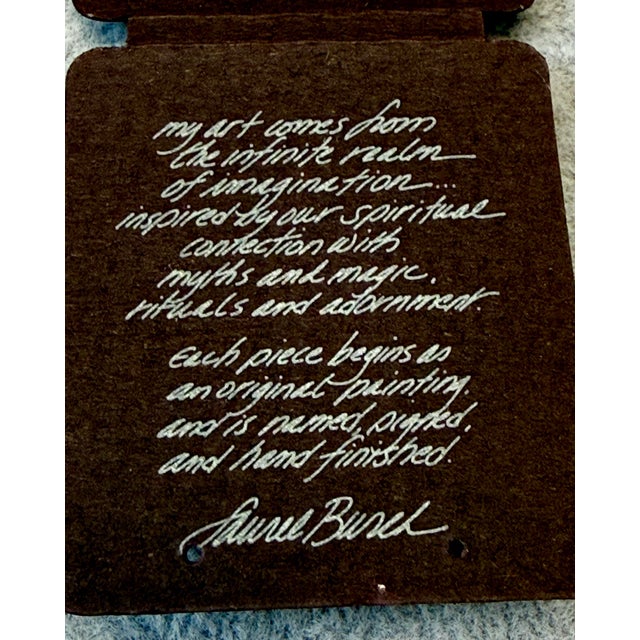 my art comes from
the infinite realm
of imagination...
inspired by our spiritual
conection with
myths and magic,
rituals and adornment.
Each piece begins as
an original painting,
and is named, signed,
and hand finished.
Laurel Burch